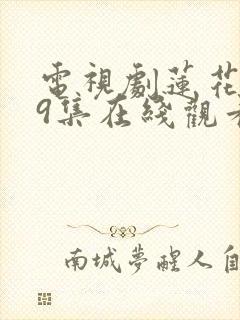 電視劇蓮花
9集在綫觀看
南城夢醒人自